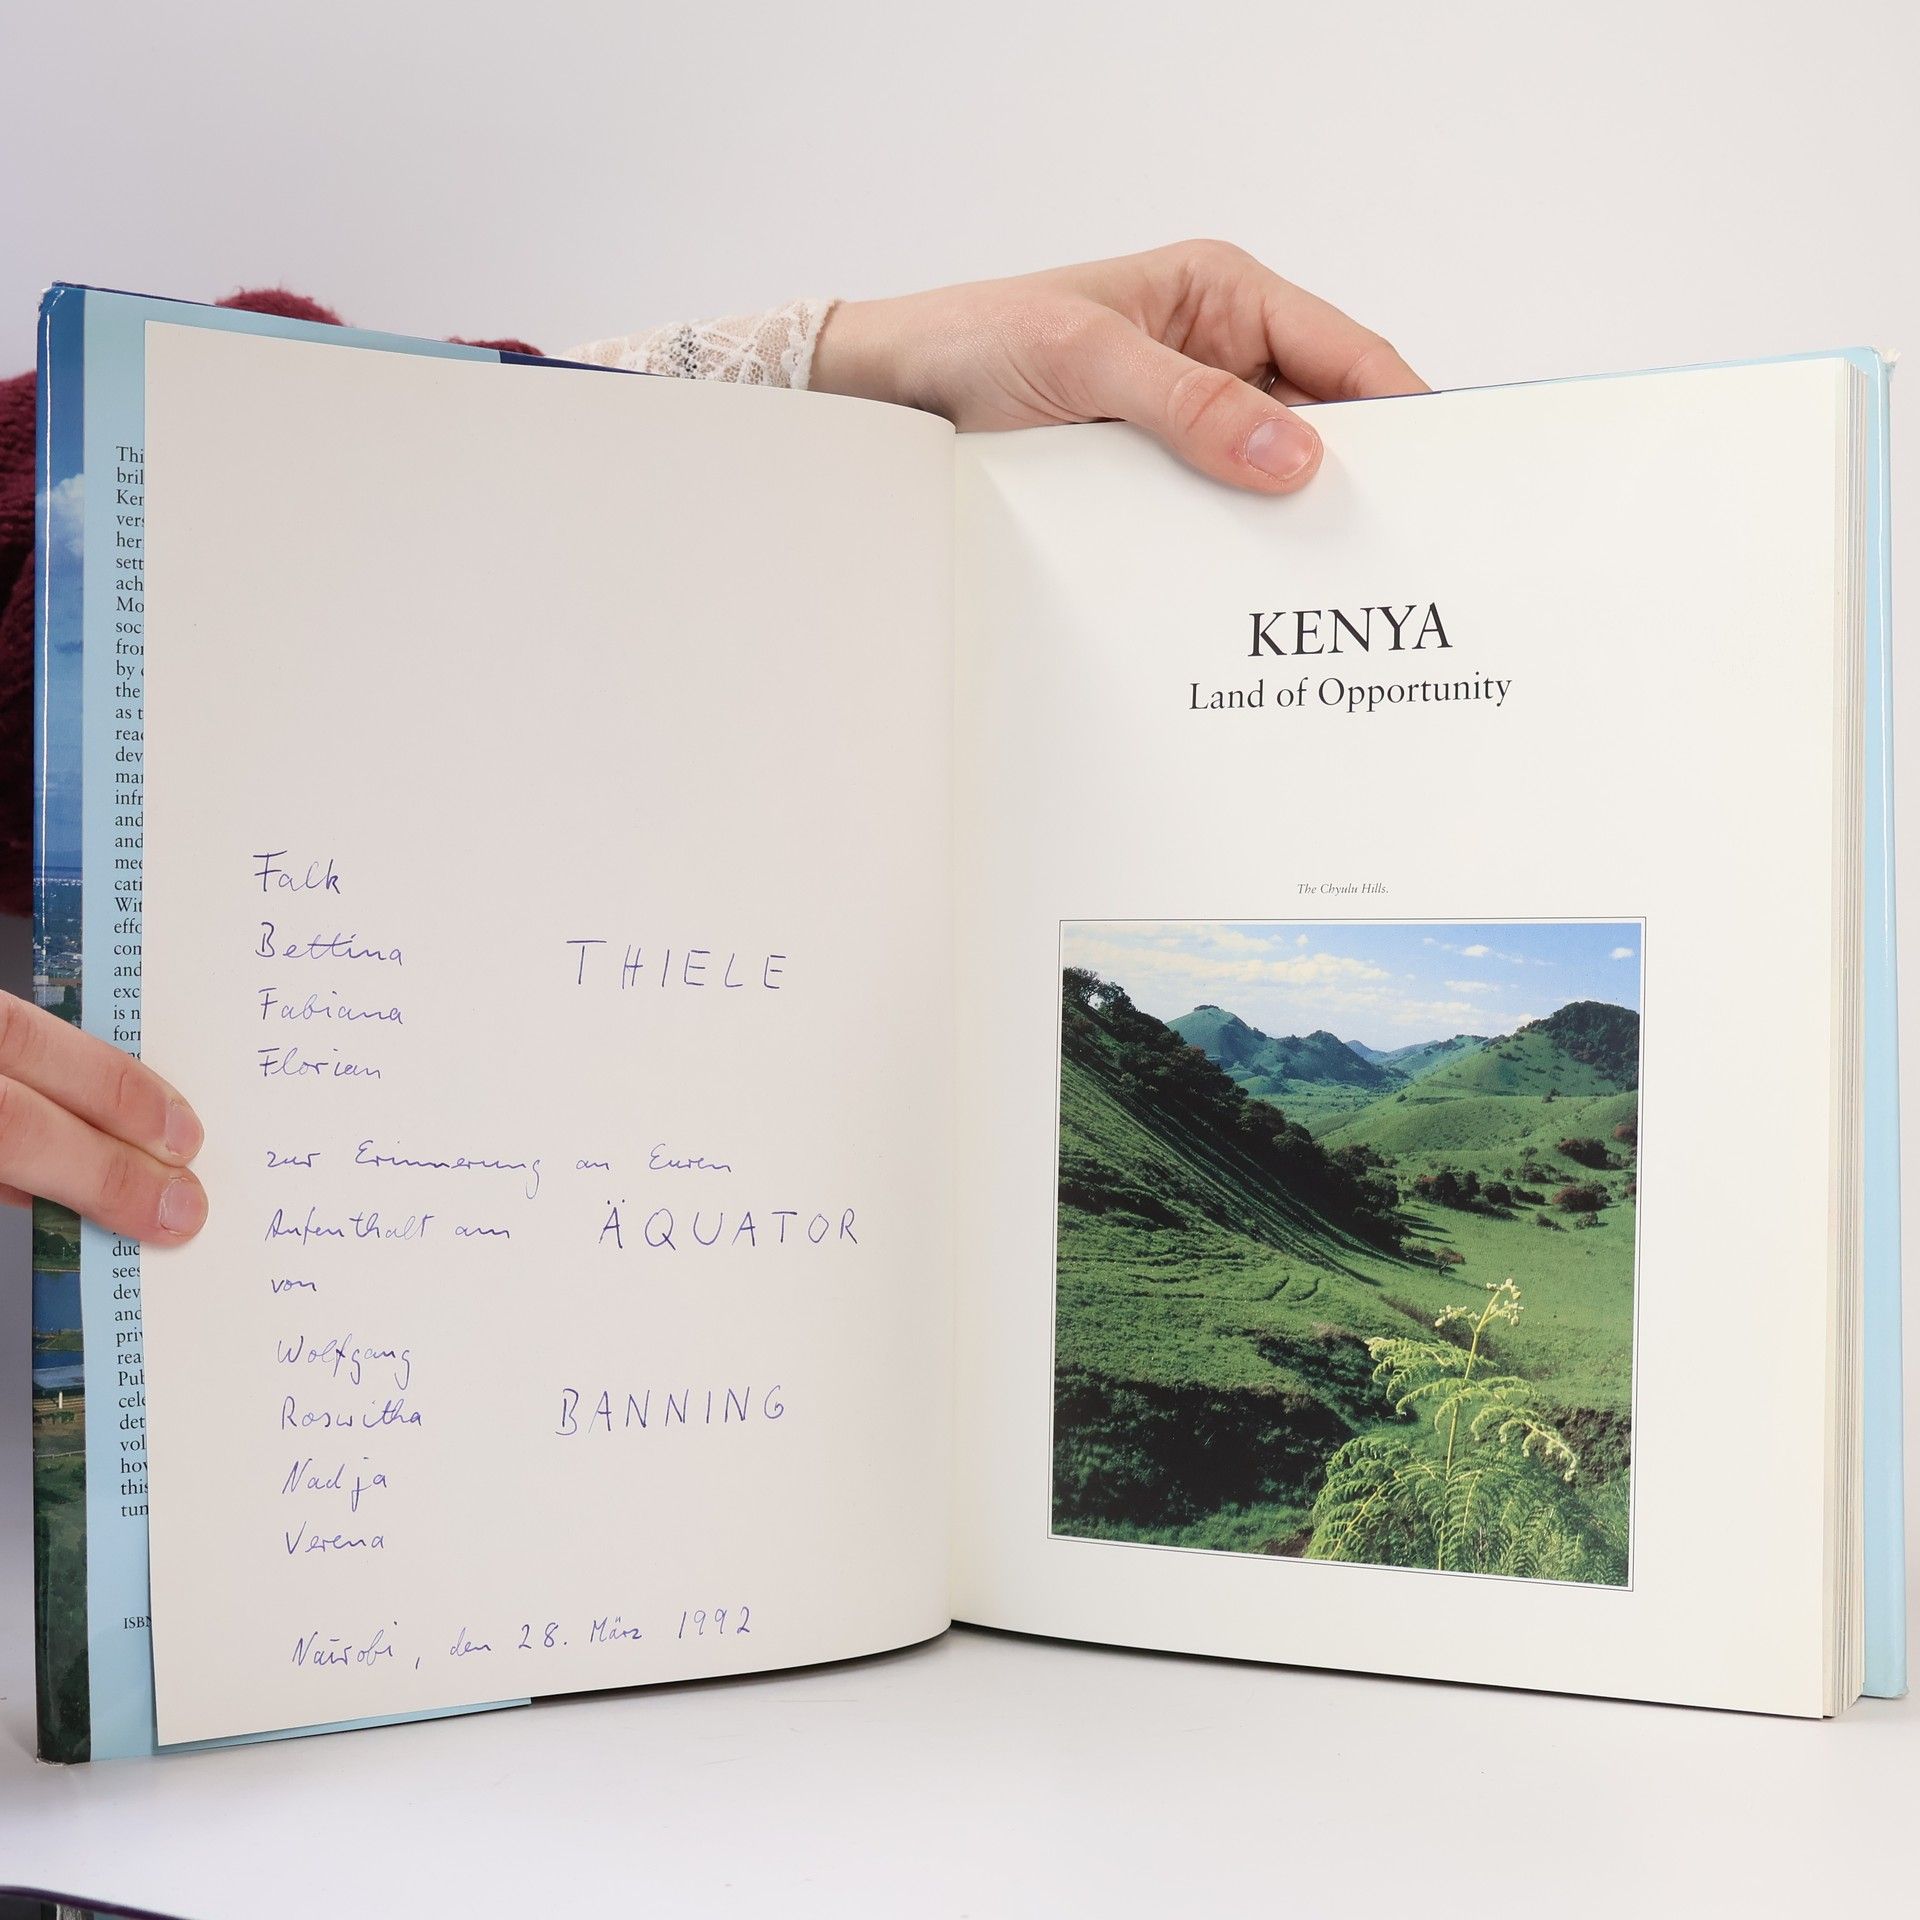 Thi
bril
Ken
vers
her
sett
ach
Mo
soc
from
by
the
as t
read
dev
mar
infr
and
and
mee
cati
Wit
effo
com
and
exc
is n
for
duc
sees
dev
and
priv
rea
Pub
cele
det
vol
how
this
tun
ISBN
Falk
Bettina THIELE
Fabiana
Florian
zur Erinnerung an Euren
Aufenthalt am ÄQUATOR
von
Wolfgang
Roswitha BANNING
Nadja
Verena
Nairobi, den 28. März 1992
KENYA
Land of Opportunity
The Chyulu Hills.